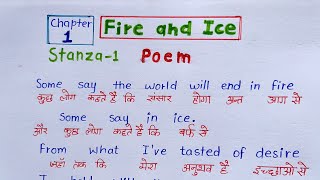 Chapter
1
Fire and Ice
Stanza-1 Poem
Some say the world will end in fire
कुछ लोग कहते है कि संसार होगा अन्त आग से
Some say in ice.
और कुछ लोग कहते है कि बर्फ से
From what I've tasted of desire
जहाँ तक कि मेरा अनुभव है इच्छाओं से